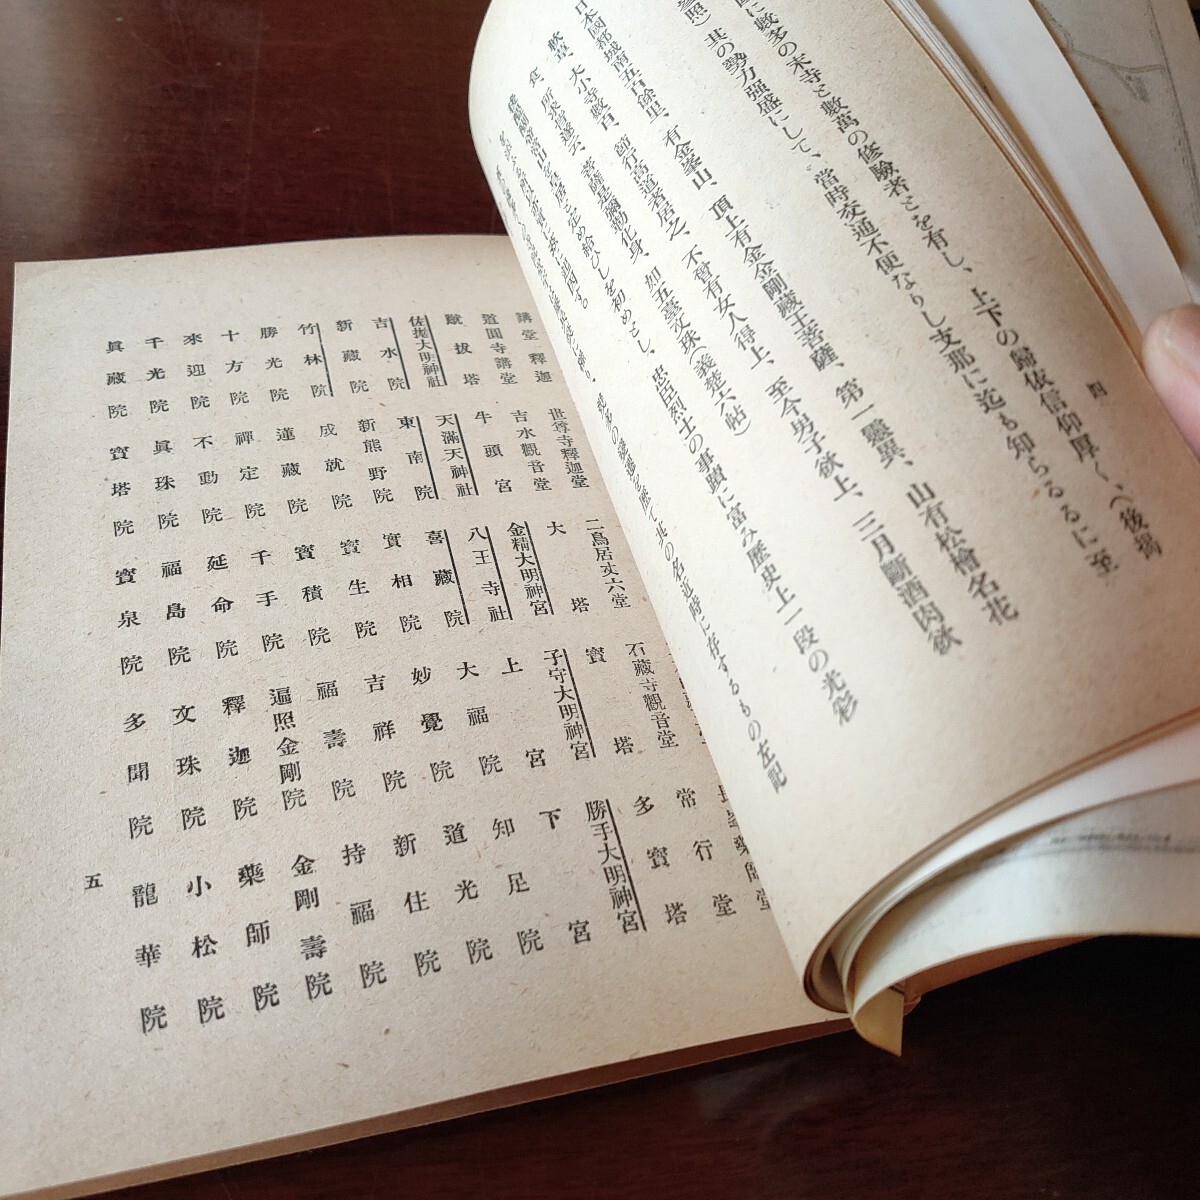 四
に數多の末寺と數萬の修驗者とを有し、上下の歸依信仰厚く、(後揭
參照)其の勢力强盛にして、當時交通不便なりし支那に迄も知らるるに至
日本國都城南五百餘里、有金峯山、頂上有金剛藏王菩薩、第一靈異、山有松檜名花
軟草、大小寺數百、節行高道者居之、不曾有女人得上、至今男子欲上、三月斷酒肉欲
色、所求皆遂云、菩薩是彌勒化身、如五臺文殊(義楚六帖)
を定め給ひしを初めとし、忠臣烈士の事蹟に富み歷史上一段の光彩
て其の名近時に存するもの左記
世尊寺釋迦堂 二鳥居丈六堂 石藏寺觀音堂
講堂釋迦 吉水觀音堂 大塔 寶塔 常行堂
道圓寺講堂 牛頭宮 金精大明神宮 子守大明神宮 多寶塔
蹴拔塔 天滿天神社 八王寺社 上宮 勝手大明神宮
佐抛大明神社 東南院 喜藏院 大福院 下宮
吉水院 新熊野院 實相院 妙覺院 知足院
新藏院 成就院 寶生院 吉祥院 道光院
竹林院 蓮藏院 寶積院 福壽院 新住院
勝光院 禪定院 千手院 遍照金剛院 持福院
十方院 不動院 延命院 釋迦院 金剛壽院
來迎院 眞珠院 福島院 文珠院 藥師院
千光院 寶塔院 寶泉院 多聞院 小松院
眞藏院 龍華院
五